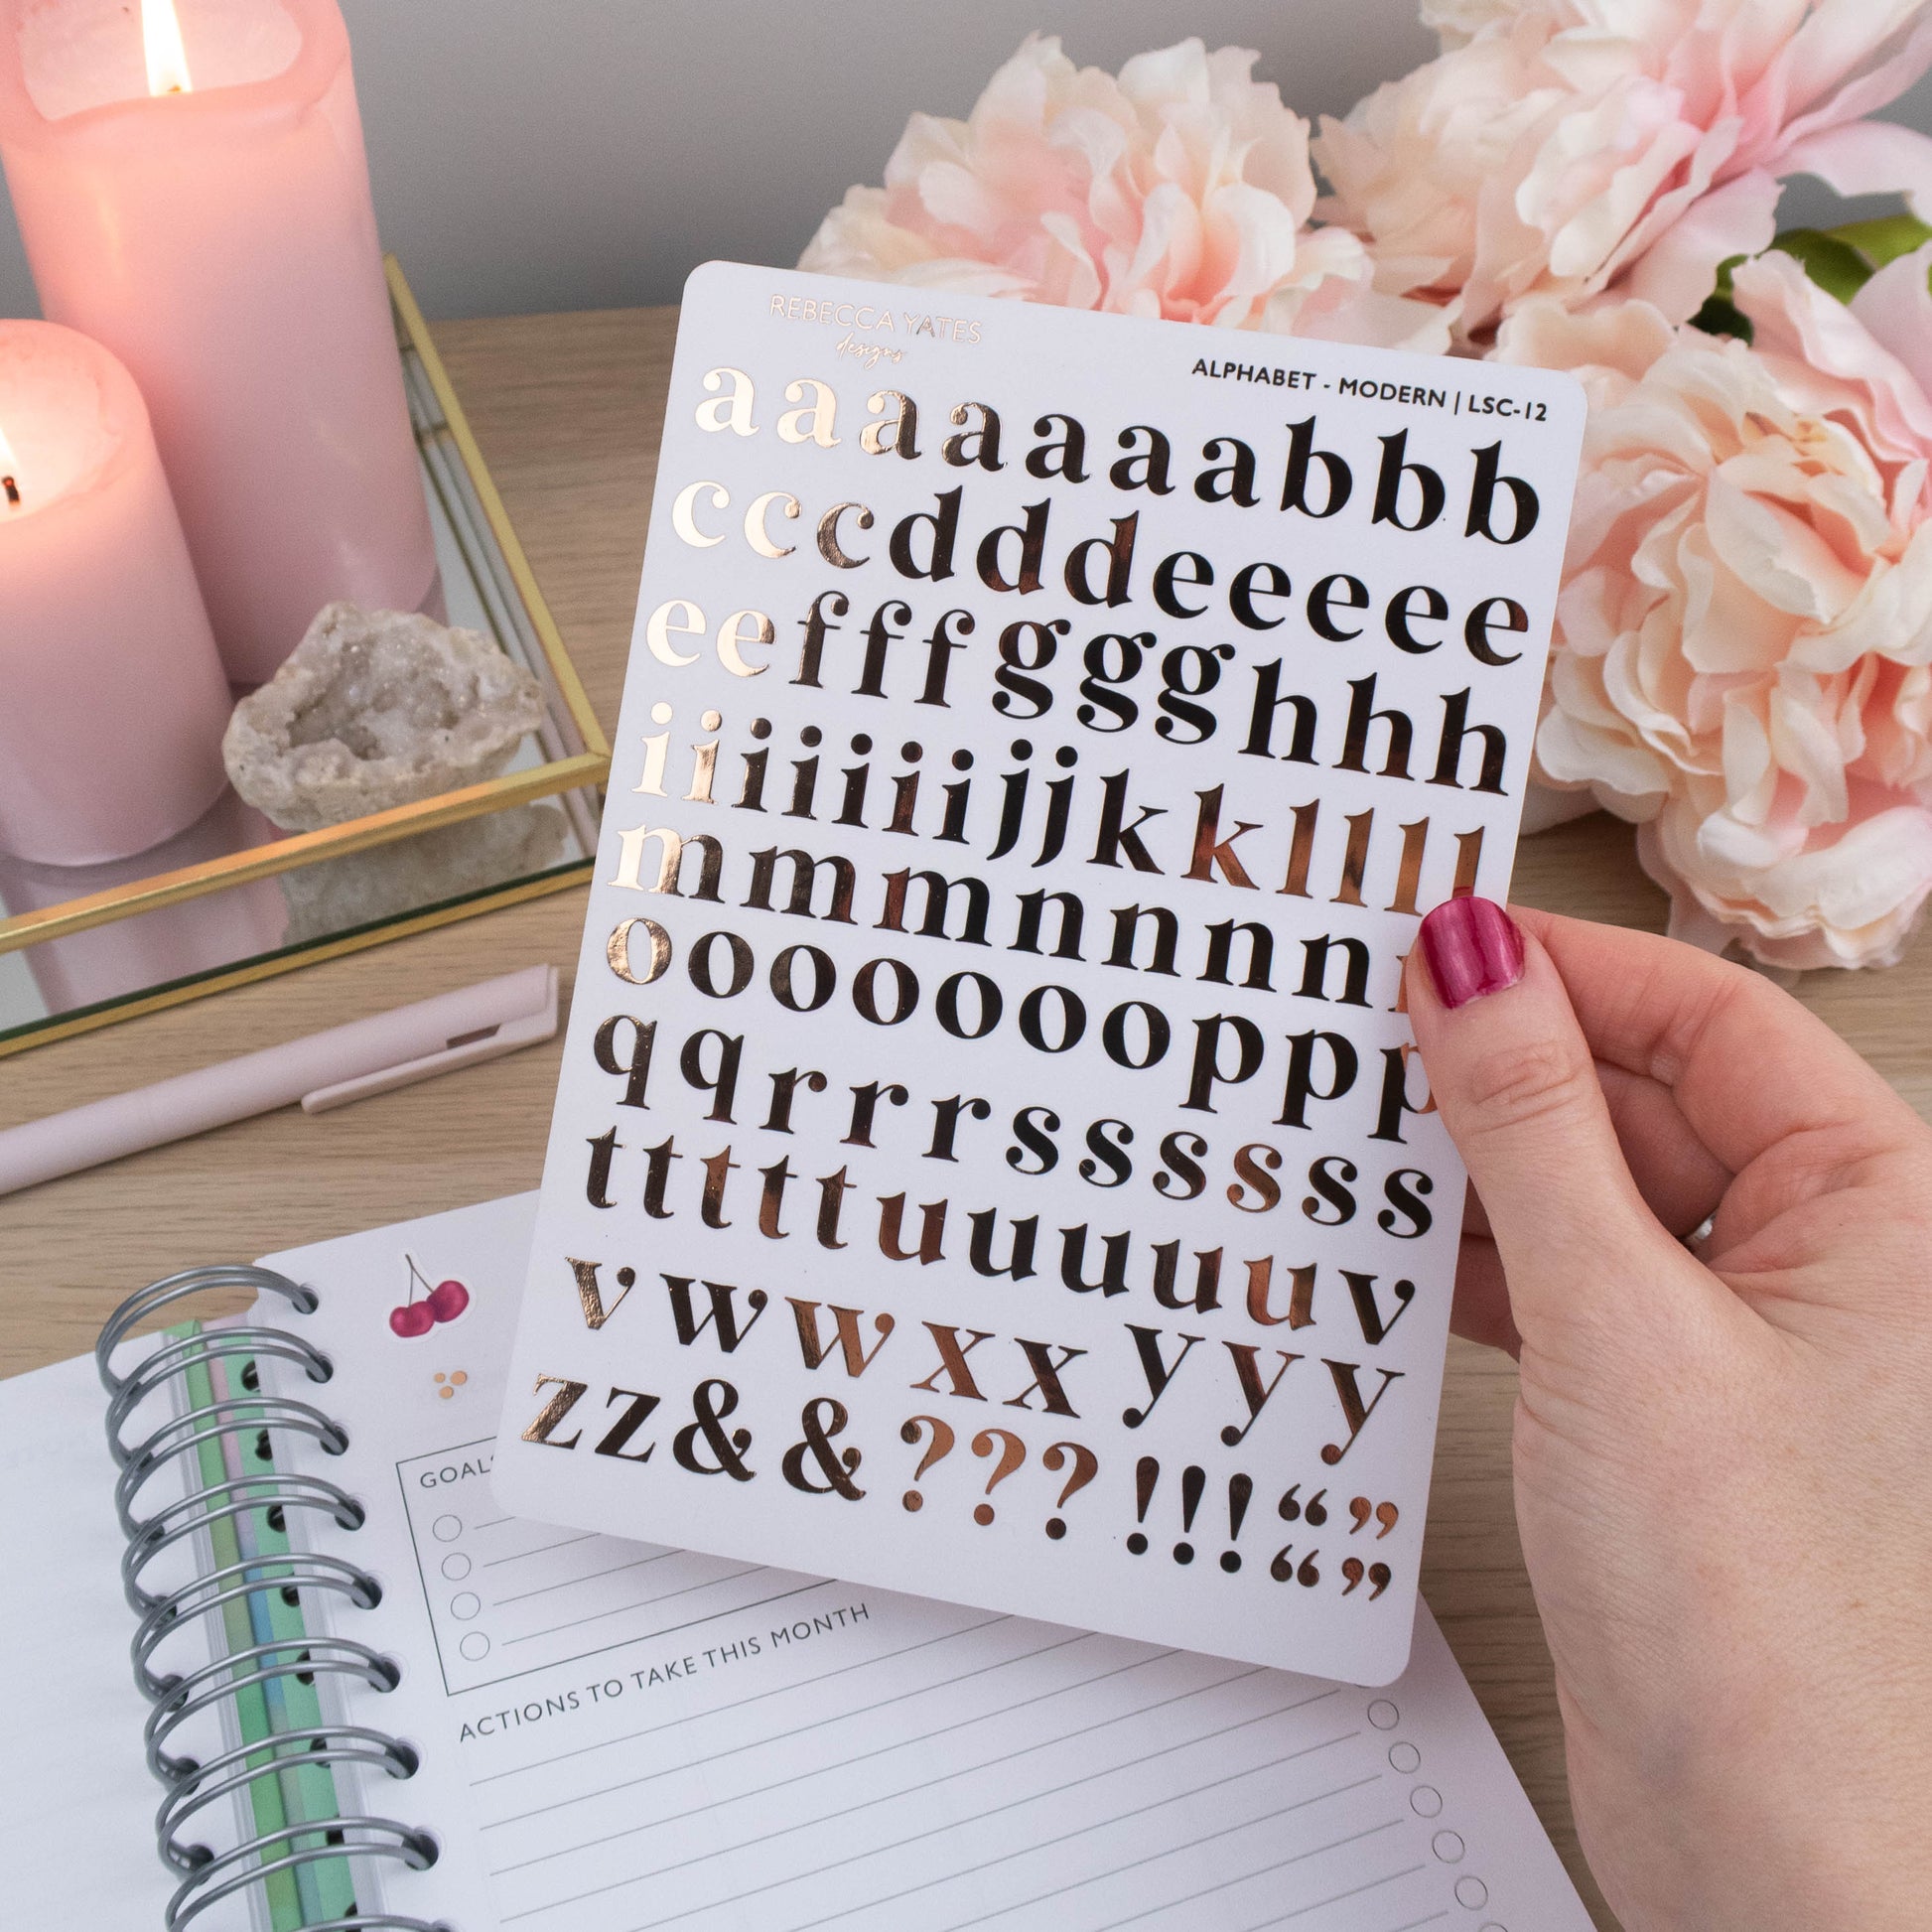 REBECCA YATES
designs
ALPHABET - MODERN | LSC-12
aaaaaaabbb
cccdddeeeee
eefffggghhh
iiiiiiijjkkllll
mmmnnnn
oooooooppp
qqrrrssssss
tttttuuuuuv
vwwxxyyy
zz&&???!!!“”
“”
GOALS
ACTIONS TO TAKE THIS MONTH